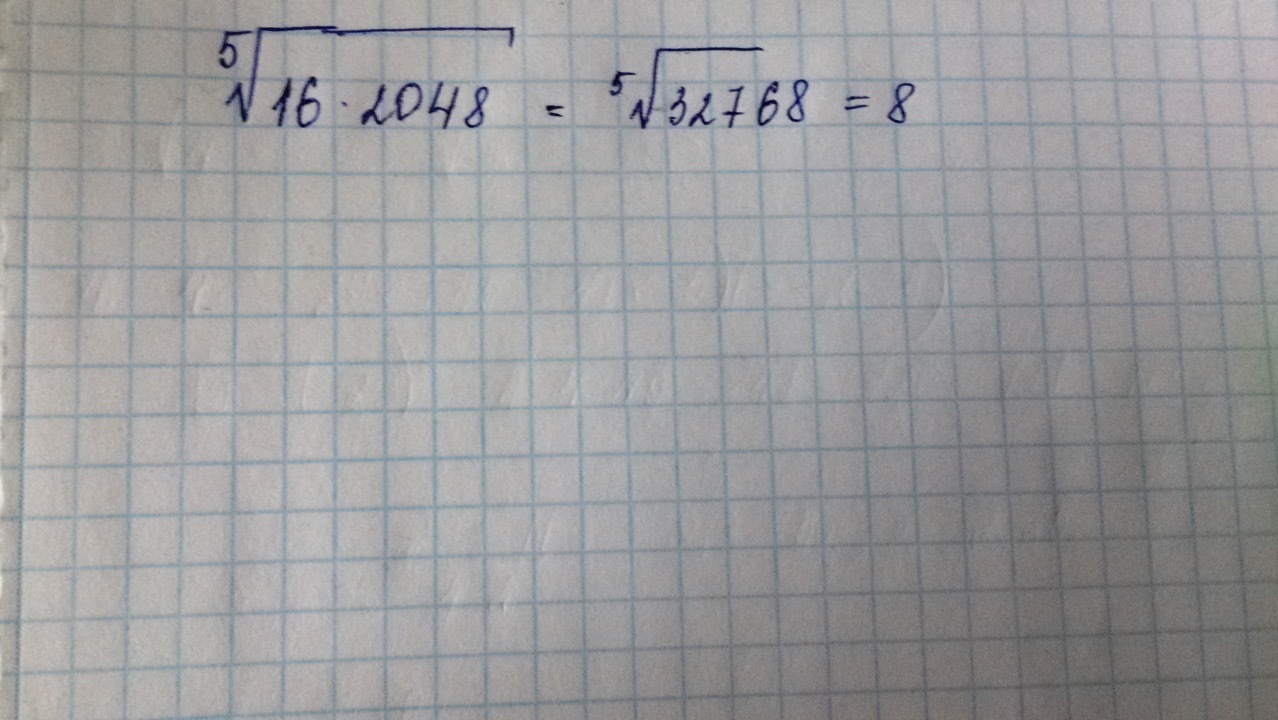 ⁵√16·2048 = ⁵√32768 = 8